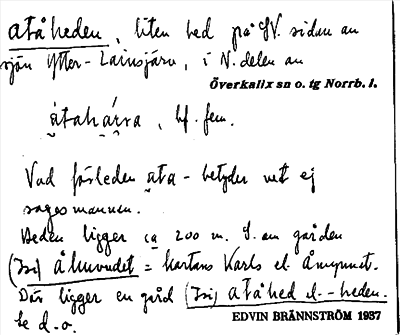 ataheden, liten hed på SV. sidan av
sjön Ytter-Lainsjärv, i N. delen av
Överkalix sn o. tg Norrb. l.
átahárra, bf. fem.
Vad förleden ata- betyder vet ej
sagesmannen.
Heden ligger ca 200 m. S. om gården
= kartans Karls el. Åmynnet.
Där ligger en gård
Se d.o.
EDVIN BRÄNNSTRÖM 1937